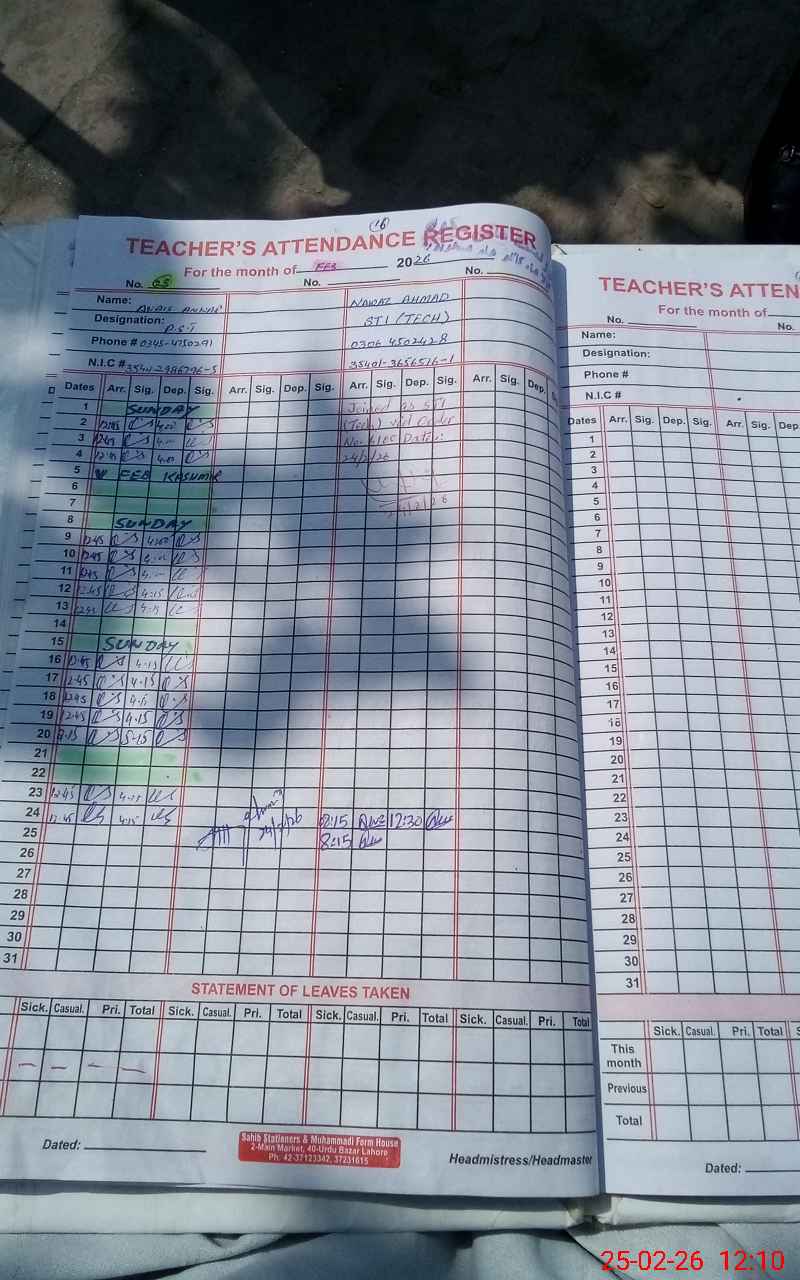 16
TEACHER'S ATTENDANCE REGISTER
For the month of FEB 2026
No. 03 No. No.
Name: NAWAZ AHMAD
Designation: P.S.T STI (TECH)
Phone # 0345-4750291 0306 4502428
N.I.C # 35401-3656516-1
Dates Arr. Sig. Dep. Sig. Arr. Sig. Dep. Sig. Arr. Sig. Dep. Sig. Arr. Sig. Dep.
1 SUNDAY Joined as STI
2 12:45 4:00 (Tech) vid order
3 12:45 4:00
4 12:45 4:00 24/2/26
5 FEB KASHMIR
6
7 24/2/26
8 SUNDAY
9 12:45 4:00
10 12:45 4:00
11 12:45 4:00
12 12:45 4:15
13 12:45 4:15
14
15 SUNDAY
16 12:45 4:15
17 12:45 4:15
18 12:45 4:15
19 12:45 4:15
20 5:15
21
22
23 12:45 4:15
24 12:45 4:15 24/2/26 12:30
25 8:15
26
27
28
29
30
31
STATEMENT OF LEAVES TAKEN
Sick. Casual. Pri. Total Sick. Casual. Pri. Total Sick. Casual. Pri. Total Sick. Casual. Pri. Total
Dated:
Sahib Stationers & Muhammadi Form House
2-Main Market, 40-Urdu Bazar Lahore
Ph. 42-37123342, 37231615
Headmistress/Headmaster
TEACHER'S ATTEN
For the month of
No. No.
Name:
Designation:
Phone #
N.I.C #
Dates Arr. Sig. Dep. Sig. Arr. Sig.
1
2
3
4
5
6
7
8
9
10
11
12
13
14
15
16
17
18
19
20
21
22
23
24
25
26
27
28
29
30
31
Sick. Casual. Pri. Total
This
month
Previous
Total
Dated:
25-02-26 12:10